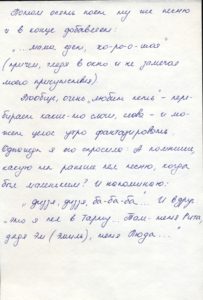 Потом опять поет ту же песню
и в конце добавляет:
"... мама, фен, хо-ро-о-шая"
(причем, глядя в окно и не замечая
моего присутствия)
Вообще, очень любит петь - пере-
бирает какие-то слоги, слова - и мо-
жет целое утро
Однажды я его спросила: А помнишь,
какую ты раньше пел песню, когда
был маленьким? И напомнила:
" дузя, дузя, ба-ба-ба"... И вдруг
"Это я пел в ... Там - тетя Рита,
дядя Эм (Эмиль), тетя Люда..."